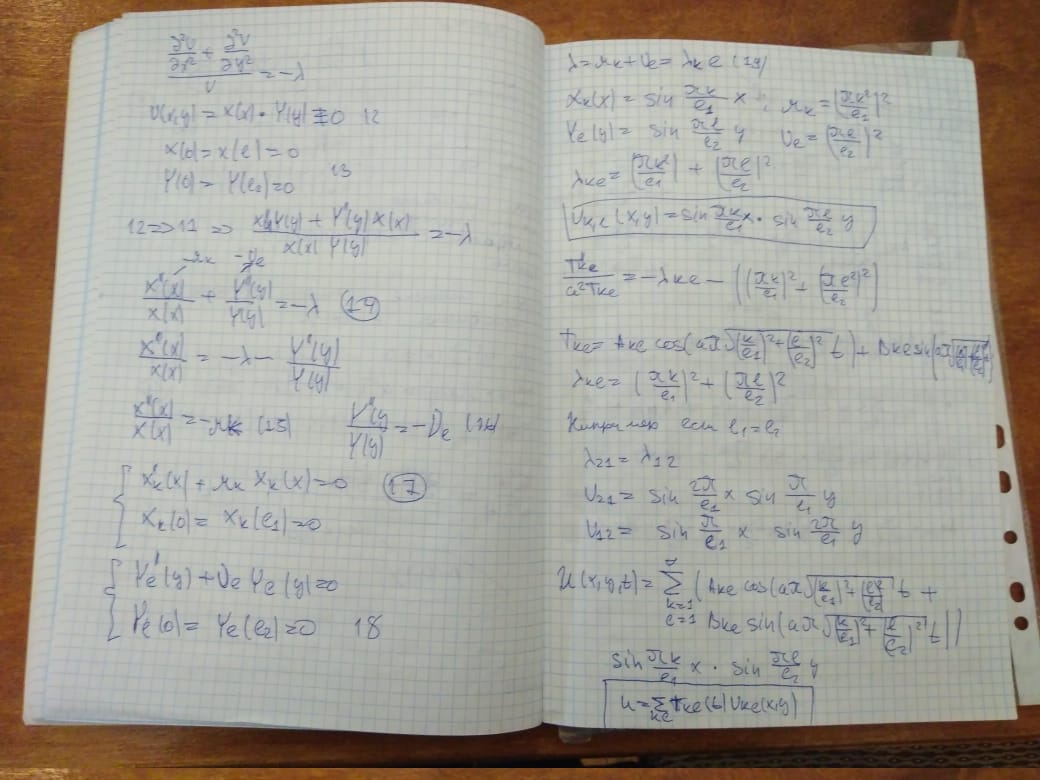 ∂²V/∂x² + ∂²V/∂y² / V = -λ
V(x,y) = X(x) · Y(y) ≠ 0 12
X(0) = X(ℓ) = 0
13
Y(0) = Y(ℓ₂) = 0
12 => 11 => X''Y(y) + Y''(y) X(x) / X(x) Y(y) = -λ
-μk -νℓ
X''(x)/X(x) + Y''(y)/Y(y) = -λ (14)
X''(x)/X(x) = -λ - Y''(y)/Y(y)
X''(x)/X(x) = -μk (15) Y''(y)/Y(y) = -νℓ (16)
X''k(x) + μk Xk(x) = 0 (17)
Xk(0) = Xk(ℓ₁) = 0
Y''ℓ(y) + νℓ Yℓ(y) = 0
Yℓ(0) = Yℓ(ℓ₂) = 0 18
λ = μk + νℓ = λkℓ (19)
Xk(x) = sin πk/ℓ₁ x ; μk = (πk²/ℓ₁)²
Yℓ(y) = sin πℓ/ℓ₂ y νℓ = (πℓ/ℓ₂)²
λkℓ = (πk²/ℓ₁) + (πℓ/ℓ₂)²
Vk,ℓ(x,y) = sin πk/ℓ₁ x · sin πℓ/ℓ₂ y
T''kℓ / a²Tkℓ = -λkℓ - ((πk/ℓ₁)² + (πℓ²/ℓ₂)²)
Tkℓ = Akℓ cos(aπ√((k/ℓ₁)² + (ℓ/ℓ₂)²) t) + Bkℓ sin(aπ√((k/ℓ₁)² + (ℓ/ℓ₂)²)
λkℓ = (πk/ℓ₁)² + (πℓ/ℓ₂)²
Например если ℓ₁ = ℓ₂
λ₂₁ = λ₁₂
V₂₁ = sin 2π/ℓ₁ x sin π/ℓ₁ y
V₁₂ = sin π/ℓ₁ x sin 2π/ℓ₁ y
U(x,y,t) = ∑ k=1 ℓ=1 ∞ (Akℓ cos(aπ√((k/ℓ₁)² + (ℓ/ℓ₂)²) t +
Bkℓ sin(aπ√((k/ℓ₁)² + (ℓ/ℓ₂)²) t))
sin πk/ℓ₁ x · sin πℓ/ℓ₂ y
u = ∑kℓ Tkℓ(t) Vkℓ(x,y)